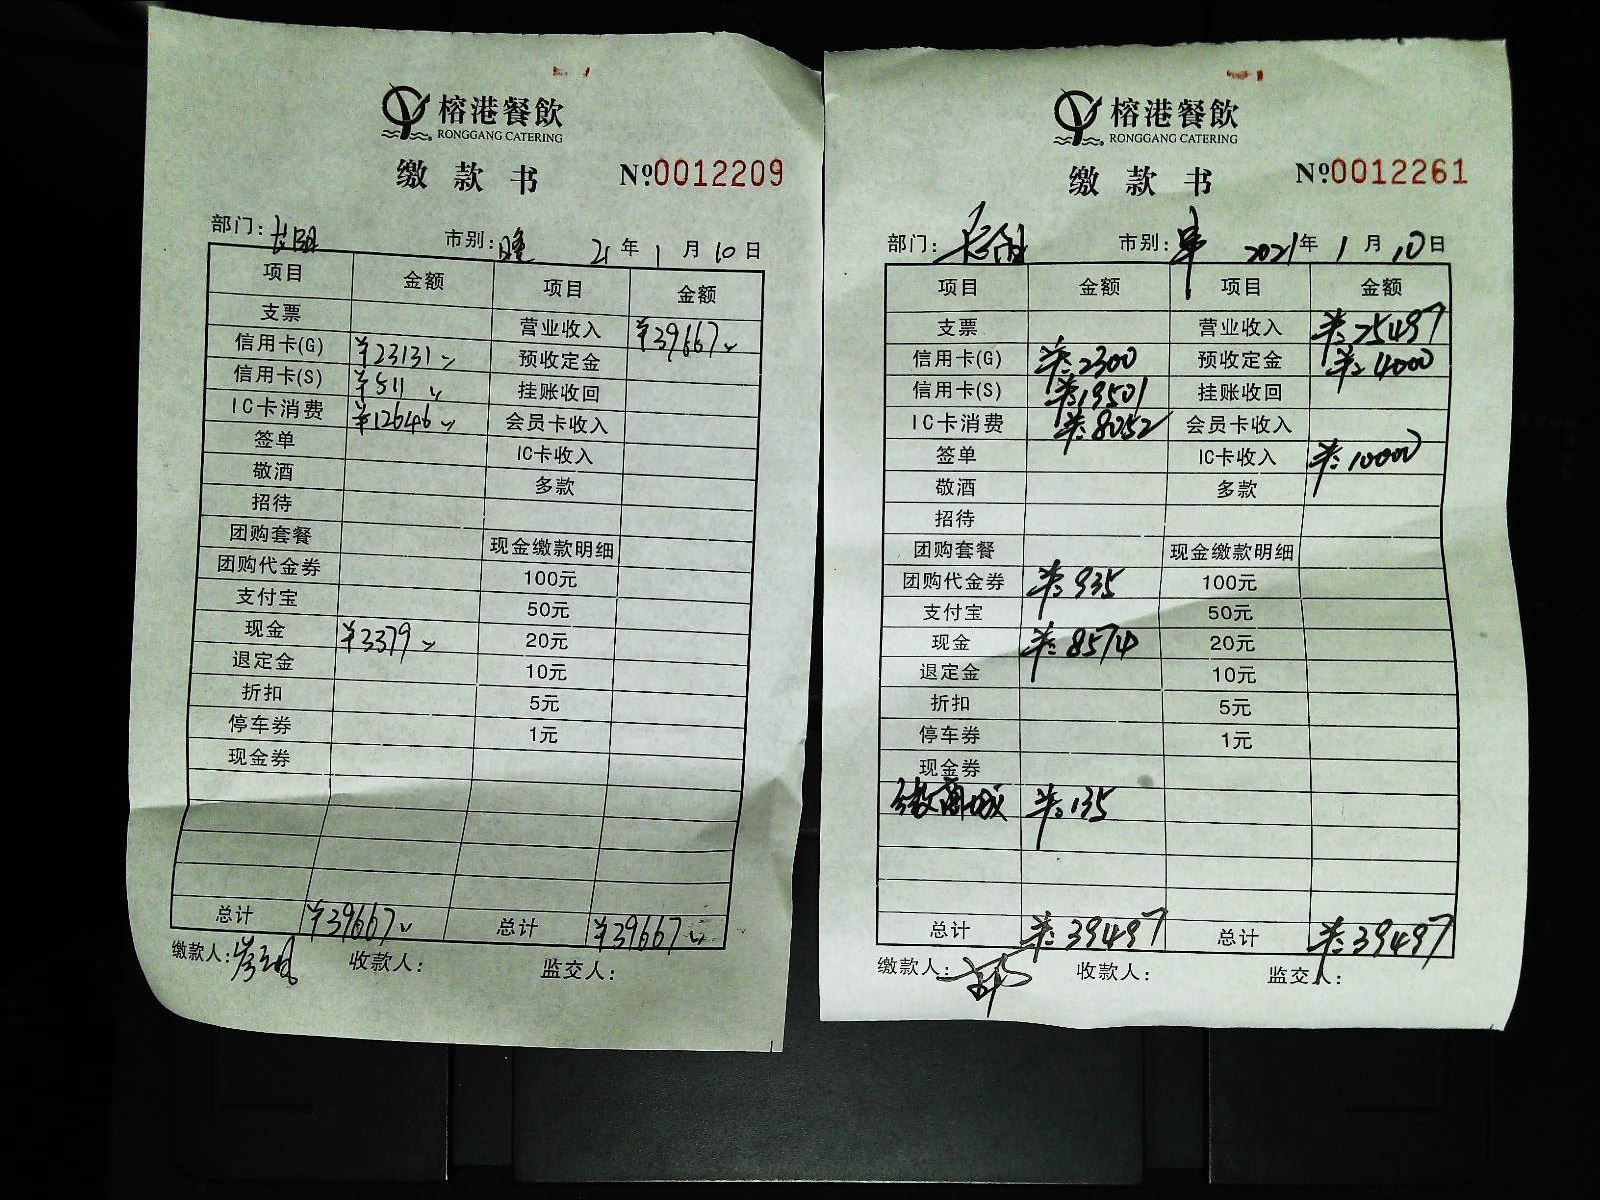 榕港餐飲
RONGGANG CATERING
缴款书 №0012209
部门: 市别: 21年1月10日
项目 金额 项目 金额
支票 营业收入 ¥39667
信用卡(G) ¥23131 预收定金
信用卡(S) ¥511 挂账收回
IC卡消费 ¥12646 会员卡收入
签单 IC卡收入
敬酒 多款
招待
团购套餐 现金缴款明细
团购代金券 100元
支付宝 50元
现金 ¥3379 20元
退定金 10元
折扣 5元
停车券 1元
现金券
总计 ¥39667 总计 ¥39667
缴款人: 收款人: 监交人:
榕港餐飲
RONGGANG CATERING
缴款书 №0012261
部门: 市别: 2021年1月10日
项目 金额 项目 金额
支票 营业收入 ¥:25497
信用卡(G) ¥:2300 预收定金 ¥:4000
信用卡(S) ¥:19501 挂账收回
IC卡消费 ¥:8052 会员卡收入
签单 IC卡收入 ¥:10000
敬酒 多款
招待
团购套餐 现金缴款明细
团购代金券 ¥:935 100元
支付宝 50元
现金 ¥:8574 20元
退定金 10元
折扣 5元
停车券 1元
现金券
商城 ¥:135
总计 ¥:39497 总计 ¥:39497
缴款人: 收款人: 监交人: